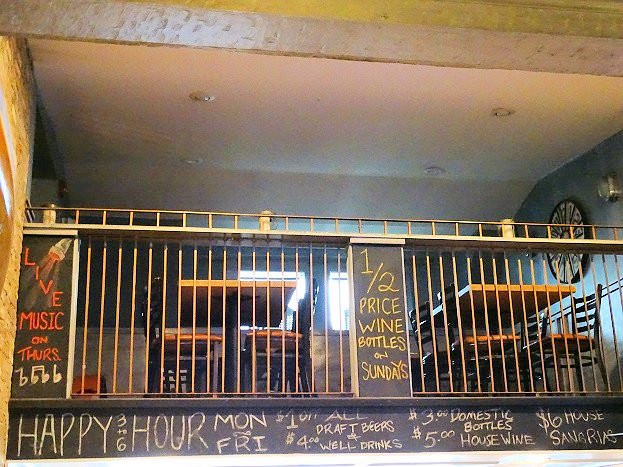 LIVE
MUSIC
ON
THURS.
1/2
PRICE
WINE
BOTTLES
ON
SUNDAYS
HAPPY 3 TO 6 HOUR
MON
TO
FRI
$1 OFF ALL
DRAFT BEERS
&
$4.00 WELL DRINKS
$3.00 DOMESTIC
BOTTLES
$5.00 HOUSE WINE
$6 HOUSE
SANGRIAS